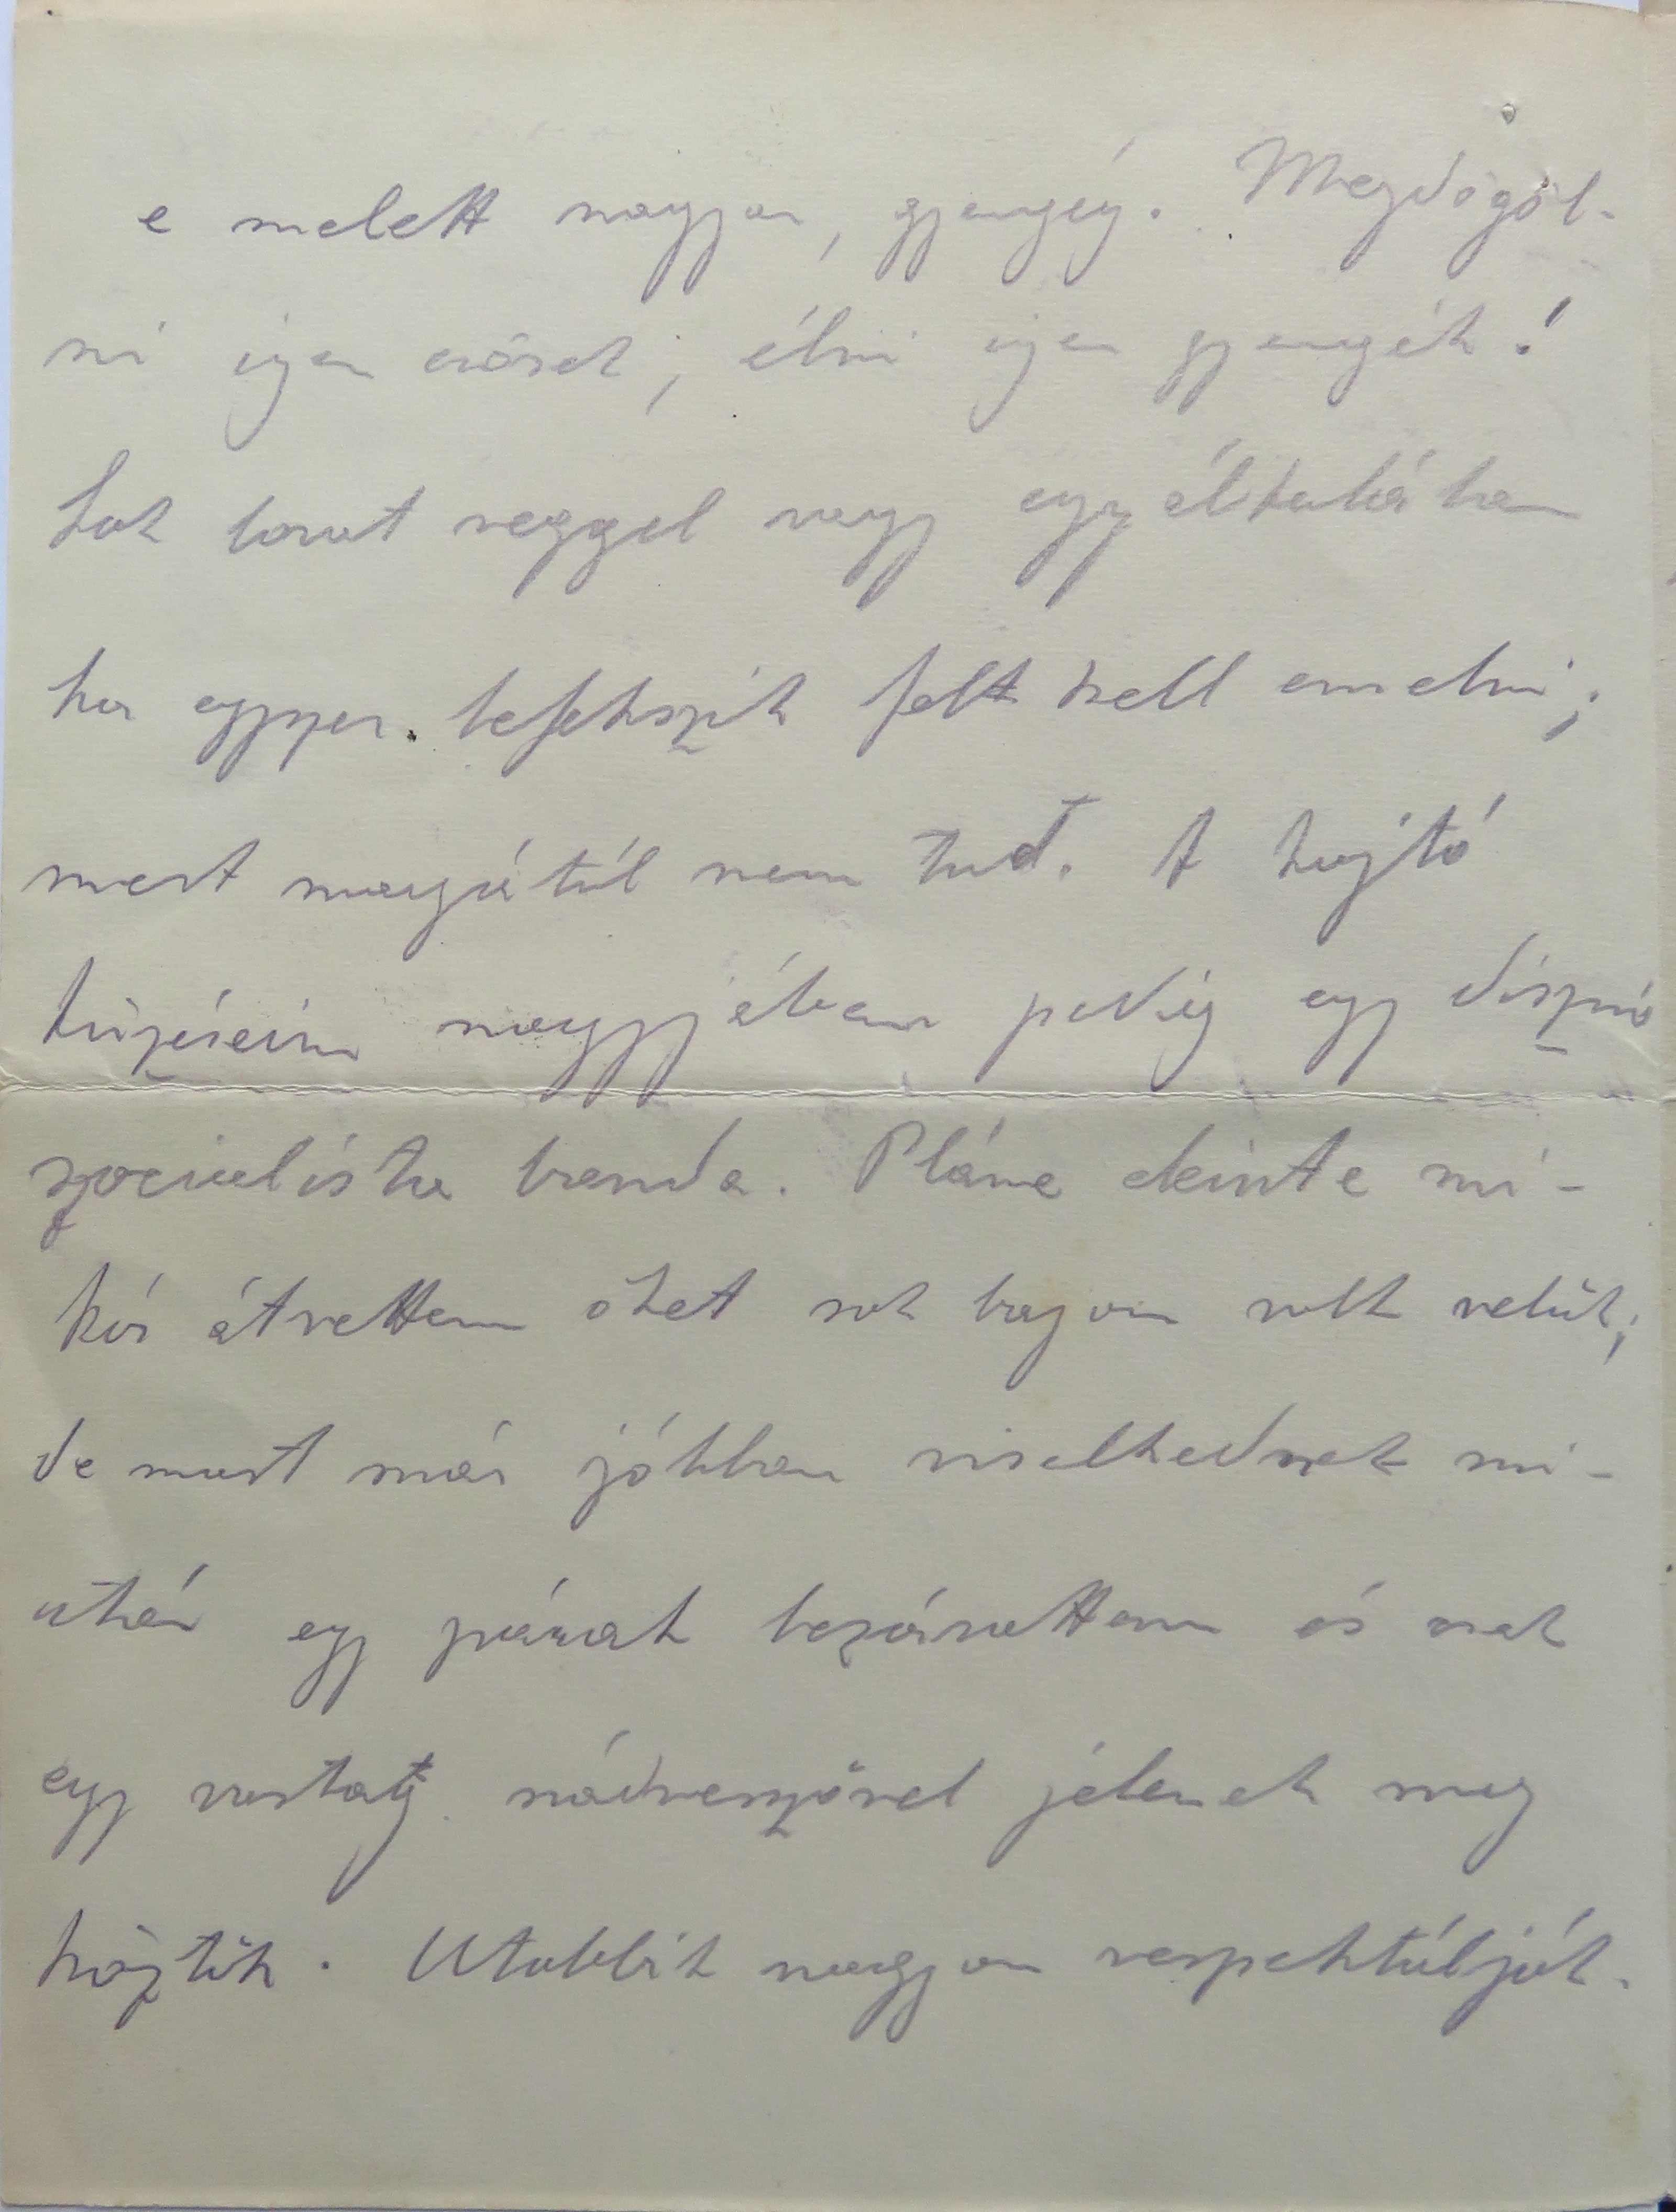 e melett nagyon, gyengég. Megdögöl-
ni igen erősek, élni igen gyengék!
Sok lovat reggel vagy egyáltalában
ha egyszer lefekszik felt kell emelni;
mert magától nem tud. A hajtó
tüzéreim nagyjában pedig egy disznó
szocialista banda. Pláne eleinte mi-
kor átvettem őket sok bajom volt velük,
de most már jobban viselkednek mi-
után egy párat bezárattam és
egy vastag nádveszővel jelenek meg
köztük. Utobbit nagyon respektálják.